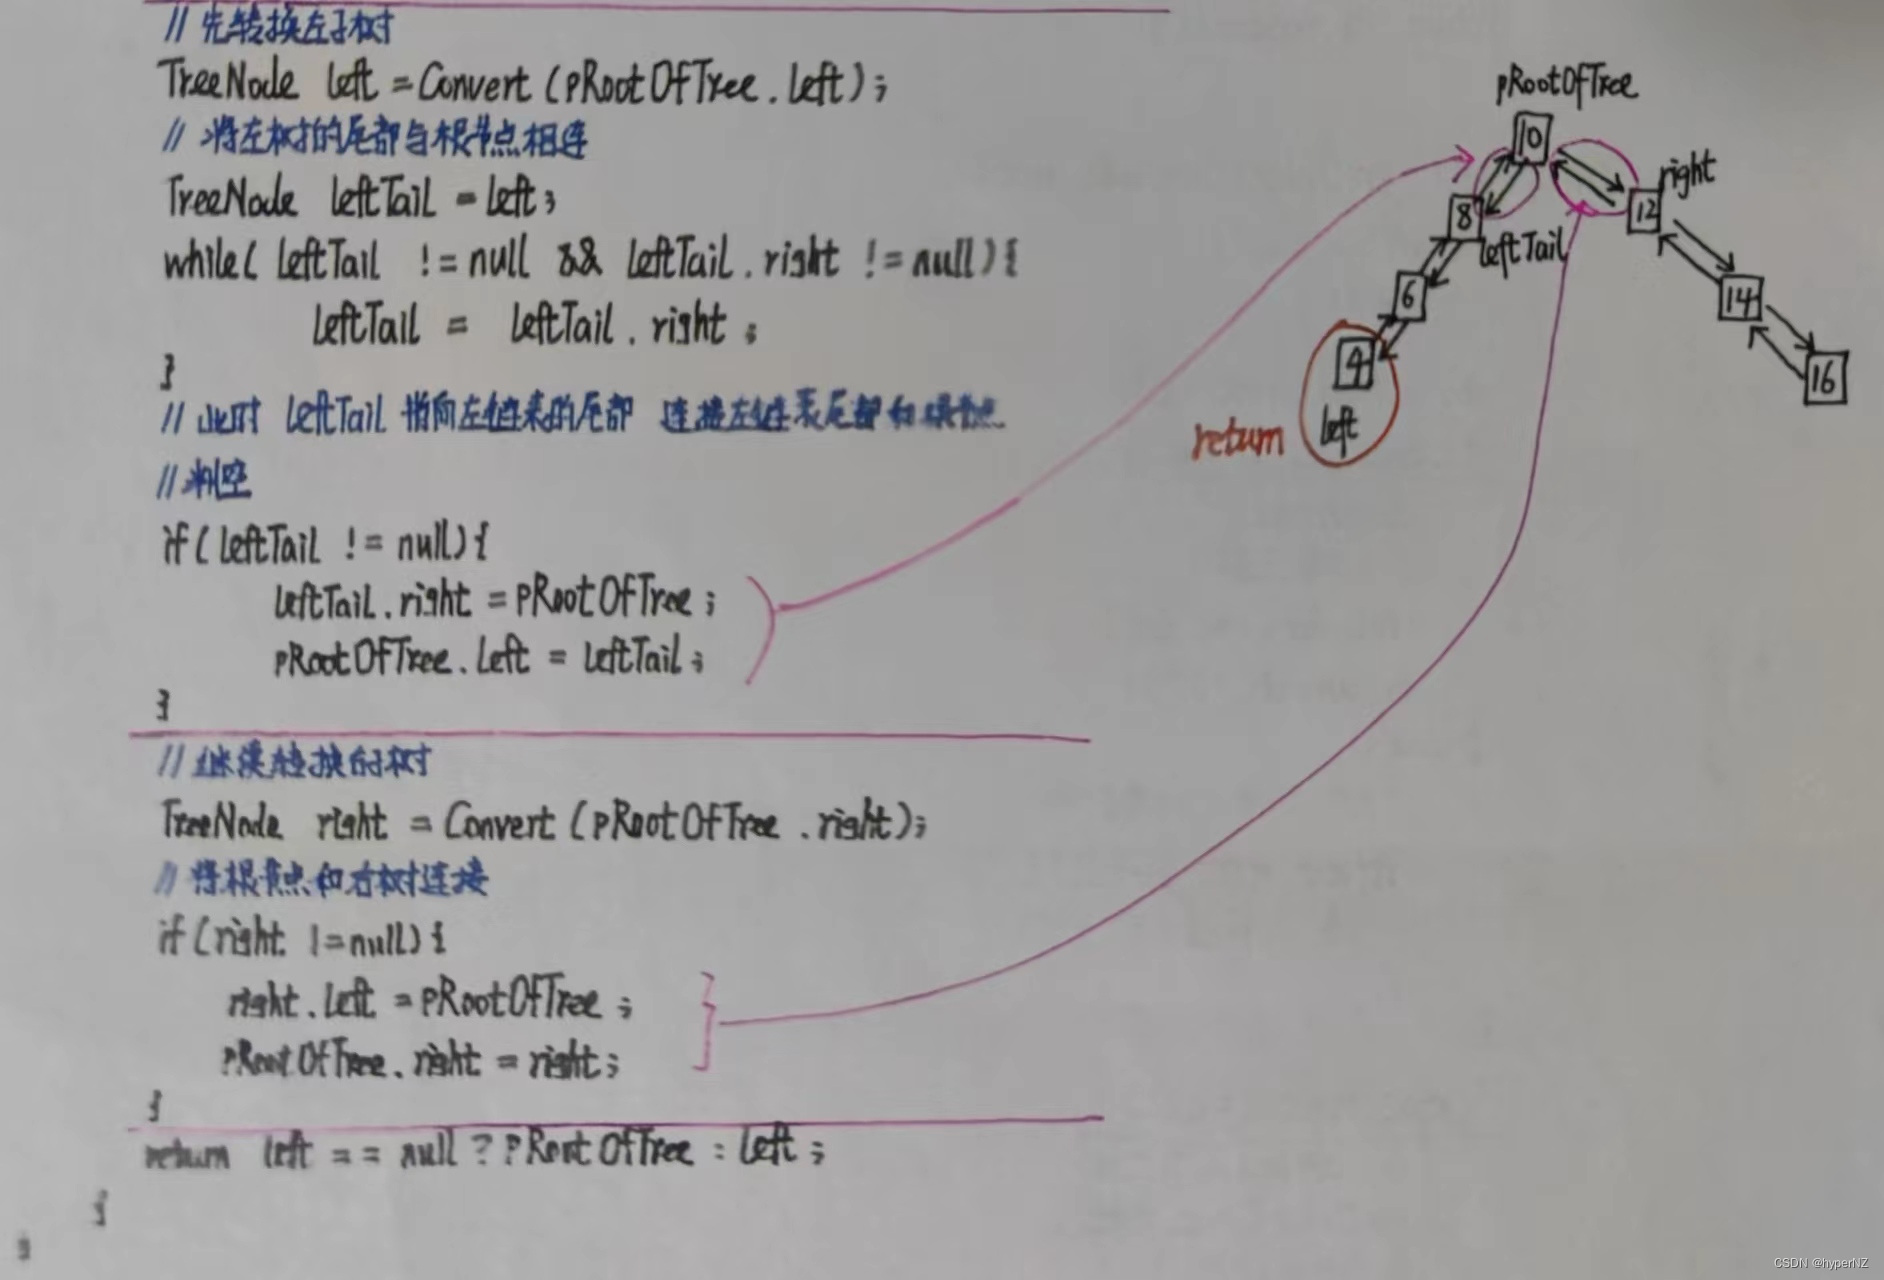 // 先转换左子树
TreeNode left = Convert (pRootOfTree . left) ;
// 将左树的尾部与根节点相连
TreeNode leftTail = left ;
while( leftTail != null && leftTail . right != null) {
leftTail = leftTail . right ;
}
// 此时 leftTail 指向左链表的尾部 连接左链表尾部和根节点
// 判空
if( leftTail != null) {
leftTail . right = pRootOfTree ;
pRootOfTree . left = leftTail ;
}
// 继续转换右子树
TreeNode right = Convert (pRootOfTree . right) ;
// 将根节点和右树连接
if (right != null) {
right . left = pRootOfTree ;
pRootOfTree . right = right ;
}
return left == null ? pRootOfTree : left ;
}
}
pRootOfTree
10
right
8
12
leftTail
6
14
4
16
left
return
CSDN @hyperNZ